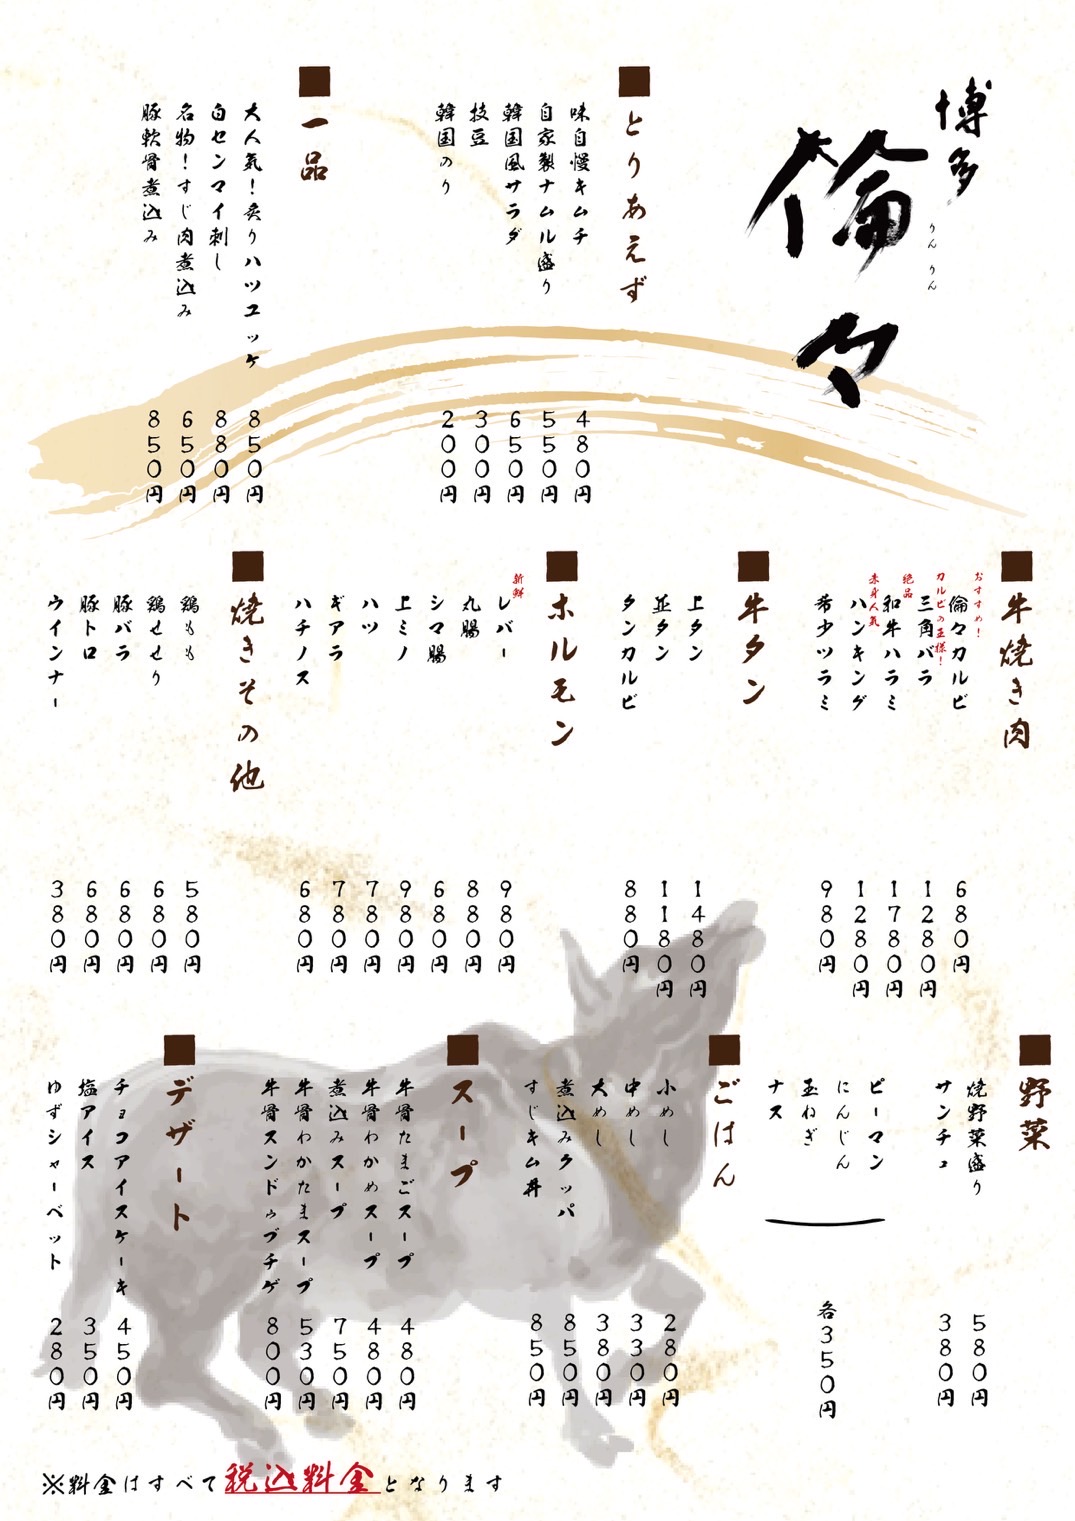 博多
倫々
りんりん
とりあえず
味自慢キムチ 480円
自家製ナムル盛り 550円
韓国風サラダ 650円
技豆 300円
韓国のり 200円
一品
大人気！炙りハツユッケ 850円
白センマイ刺し 880円
名物！すじ肉煮込み 650円
豚軟骨煮込み 850円
牛焼き肉
おすすめ！
倫々カルビ 680円
カルビの王様！
三角バラ 1280円
絶品
和牛ハラミ 1780円
赤身人気
ハンキング 1280円
希少ツラミ 980円
牛タン
上タン 1480円
並タン 1180円
タンカルビ 880円
ホルモン
新鮮
レバー 980円
丸腸 880円
シマ腸 680円
上ミノ 980円
ハツ 780円
ギアラ 780円
ハチノス 680円
焼きその他
鶏もも 580円
鶏せせり 680円
豚バラ 680円
豚トロ 680円
ウインナー 380円
野菜
焼野菜盛り 580円
サンチュ 380円
ピーマン
にんじん
玉ねぎ
ナス
各350円
ごはん
小めし 280円
中めし 330円
大めし 380円
煮込みクッパ 850円
すじキム丼 850円
スープ
牛骨たまごスープ 480円
牛骨わかめスープ 480円
煮込みスープ 750円
牛骨わかたまスープ 530円
牛骨スンドゥブチゲ 800円
デザート
チョコアイスケーキ 450円
塩アイス 350円
ゆずシャーベット 280円
※料金はすべて税込料金となります